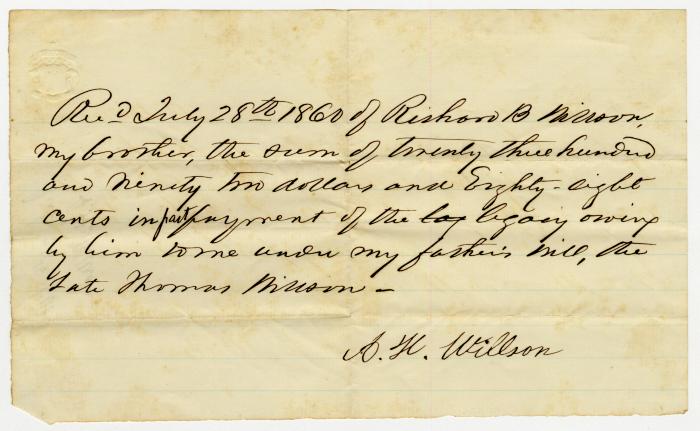 Rec'd July 28th 1860 of Richard B Willson,
my brother, the sum of twenty three hundred
and Ninety two dollars and Eighty-eight
cents in part payment of the leg legacy owing
by him to me under my father's Will, the
late Thomas Willson -
A. H. Willson